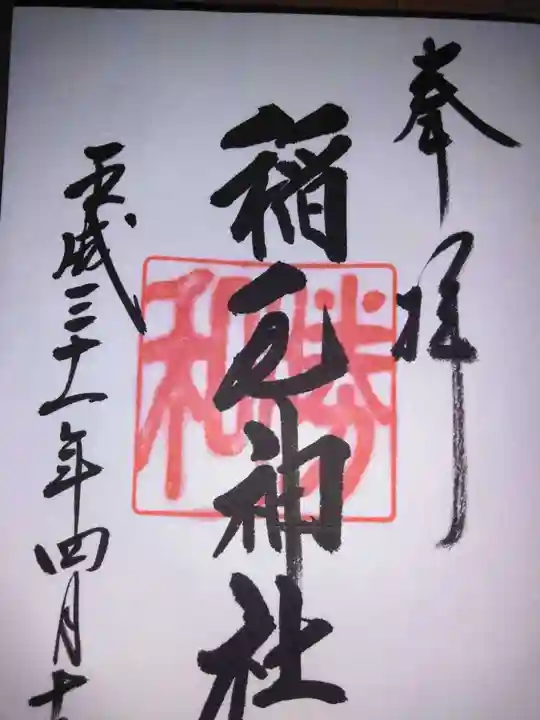 奉拝
稲毛神社
勝
和
平成三十一年四月十